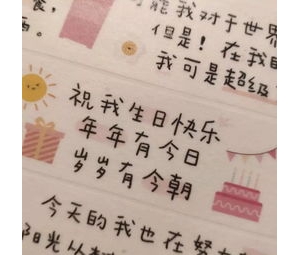 食，
可能我对于世界
但是！在我
我可是超级
祝我生日快乐
年年有今日
岁岁有今朝
今天的我也在努
阳光